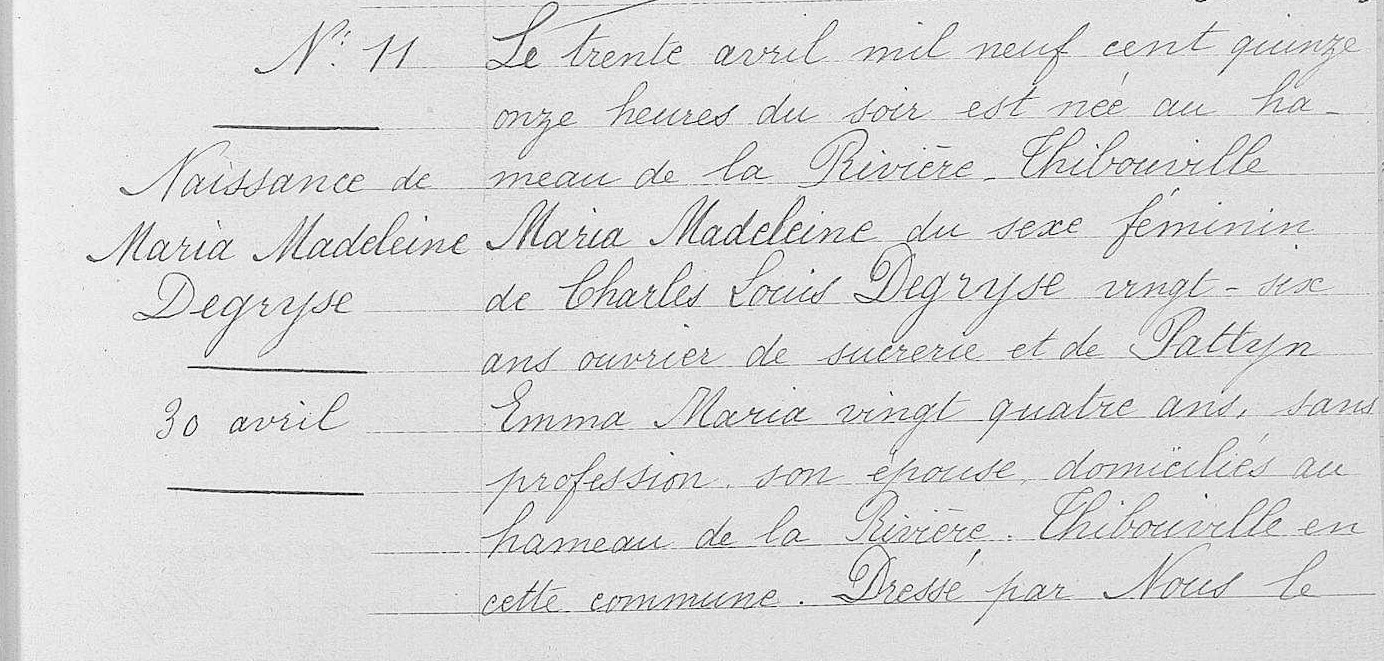 N° 11
Naissance de
Maria Madeleine
Degryse
30 avril
Le trente avril mil neuf cent quinze
onze heures du soir est née au ha-
meau de la Rivière-Thibouville
Maria Madeleine du sexe féminin
de Charles Louis Degryse vingt-six
ans ouvrier de sucrerie et de Pattyn
Emma Maria vingt quatre ans, sans
profession, son épouse, domiciliés au
hameau de la Rivière-Thibouville en
cette commune. Dressé par Nous le